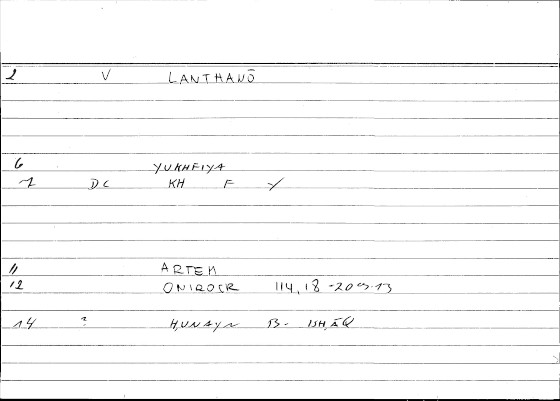 2 V LANTHANŌ
6 YUKHFIYA
7 DC KH F Y
11 ARTEM
12 ONIROCR 114,18 -20
14 ? H,UNAYN B- ISH,ĀQ